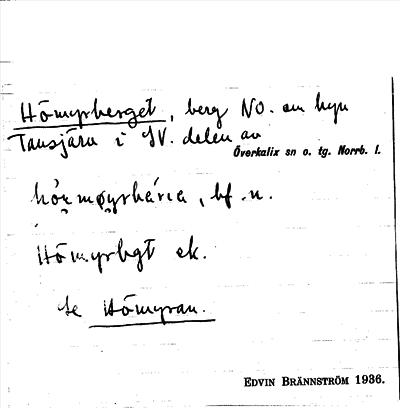 Hömyrberget, berg NO. om byn
Tansjärv i SV. delen av
Överkalix sn o. tg. Norrb. l.
bf. n.
Hömyrbgt ek.
Se Hömyran.
EDVIN BRÄNNSTRÖM 1936.